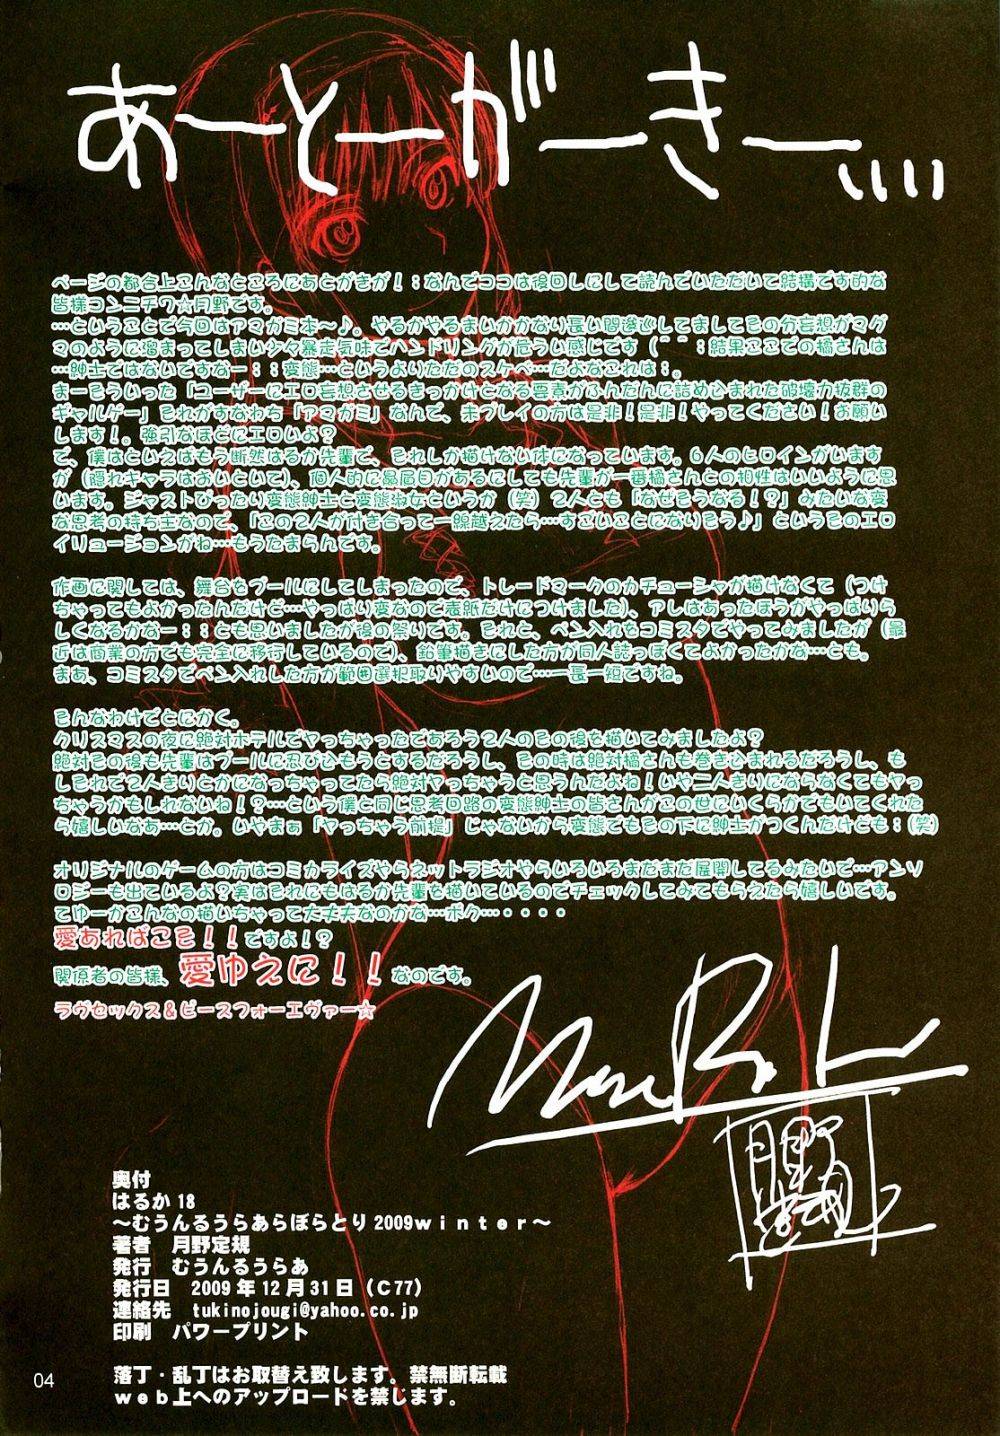 あーとーがーきー、、、、、
ページの都合上こんなところにあとがきが！；なんでココは後回しにして読んでいただいて結構です的な
皆様コンニチワ☆月野です。
…ということで今回はアマガミ本～♪。やるかやるまいかかなり長い間逡巡してましてその分妄想がマグ
マのように溜まってしまい少々暴走気味でハンドリングが危うい感じです（＾＾；結果ここでの橘さんは
…紳士ではないですなー；；変態…というよりただのスケベ…だよなこれは；。
まーそういった「ユーザーにエロ妄想させるきっかけとなる要素がふんだんに詰めこまれた破壊力抜群の
ギャルゲー」それがすなわち「アマガミ」なんで、未プレイの方は是非！是非！やってください！お願い
します！。強引なほどにエロいよ？
で、僕はといえばもう断然はるか先輩で、それしか描けない体になっています。6人のヒロインがいます
が（隠れキャラはおいといて）、個人的に贔屓目があるにしても先輩が一番橘さんとの相性はいいように思
います。ジャストぴったい変態紳士と変態淑女というか（笑）2人とも「なぜそうなる！？」みたいな変
な思考の持ち主なので、「この2人が付き合って一線越えたら…すごいことになりそう♪」というそのエロ
イリュージョンがね…もうたまらんです。
作画に関しては、舞台をプールにしてしまったので、トレードマークのカチューシャが描けなくて（つけ
ちゃってもよかったんだけど…やっぱり変なので表紙だけにつけました）、アレはあったほうがやっぱりら
しくなるかなー；；とも思いましたが後の祭りです。それと、ペン入れをコミスタでやってみましたが（最
近は商業の方でも完全に移行しているので）、鉛筆描きにした方が同人誌っぽくてよかったかな…とも。
まあ、コミスタでペン入れした方が範囲選択取りやすいので…一長一短ですね。
そんなわけでとにかく。
クリスマスの夜に絶対ホテルでヤっちゃったであろう2人のその後を描いてみましたよ？
絶対その後も先輩はプールに忍びひもうとするだろうし、その時は絶対橘さんも巻きひまれるだろうし、も
しそれで2人きりとかになっちゃってたら絶対ヤっちゃうと思うんだよね！いや二人きりにならなくてもヤっ
ちゃうかもしれないね！？…という僕と同じ思考回路の変態紳士の皆さんがこの世にいくらかでもいてくれた
ら嬉しいなあ…とか。いやまぁ「ヤっちゃう前提」じゃないから変態でもその下に紳士がつくんだけども；(笑)
オリジナルのゲームの方はコミカライズやらネットラジオやらいろいろまだまだ展開してるみたいで…アンソ
ロジーも出ているよ？実はそれにもはるか先輩を描いているのでチェックしてみてもらえたら嬉しいです。
てゆーかこんなの描いちゃって大丈夫なのかな…ボク…・・・・
愛あればこそ！！ですよ！？
関係者の皆様、愛ゆえに！！なのです。
ラヴセックス＆ピースフォーエヴァー☆
奥付
はるか18
～むうんるうらあらぼらとり2009winter～
著者　月野定規
発行　むうんるうらあ
発行日　2009年12月31日（C77）
連絡先　tukinojougi@yahoo.co.jp
印刷　パワープリント
04
落丁・乱丁はお取替え致します。禁無断転載
web上へのアップロードを禁します。